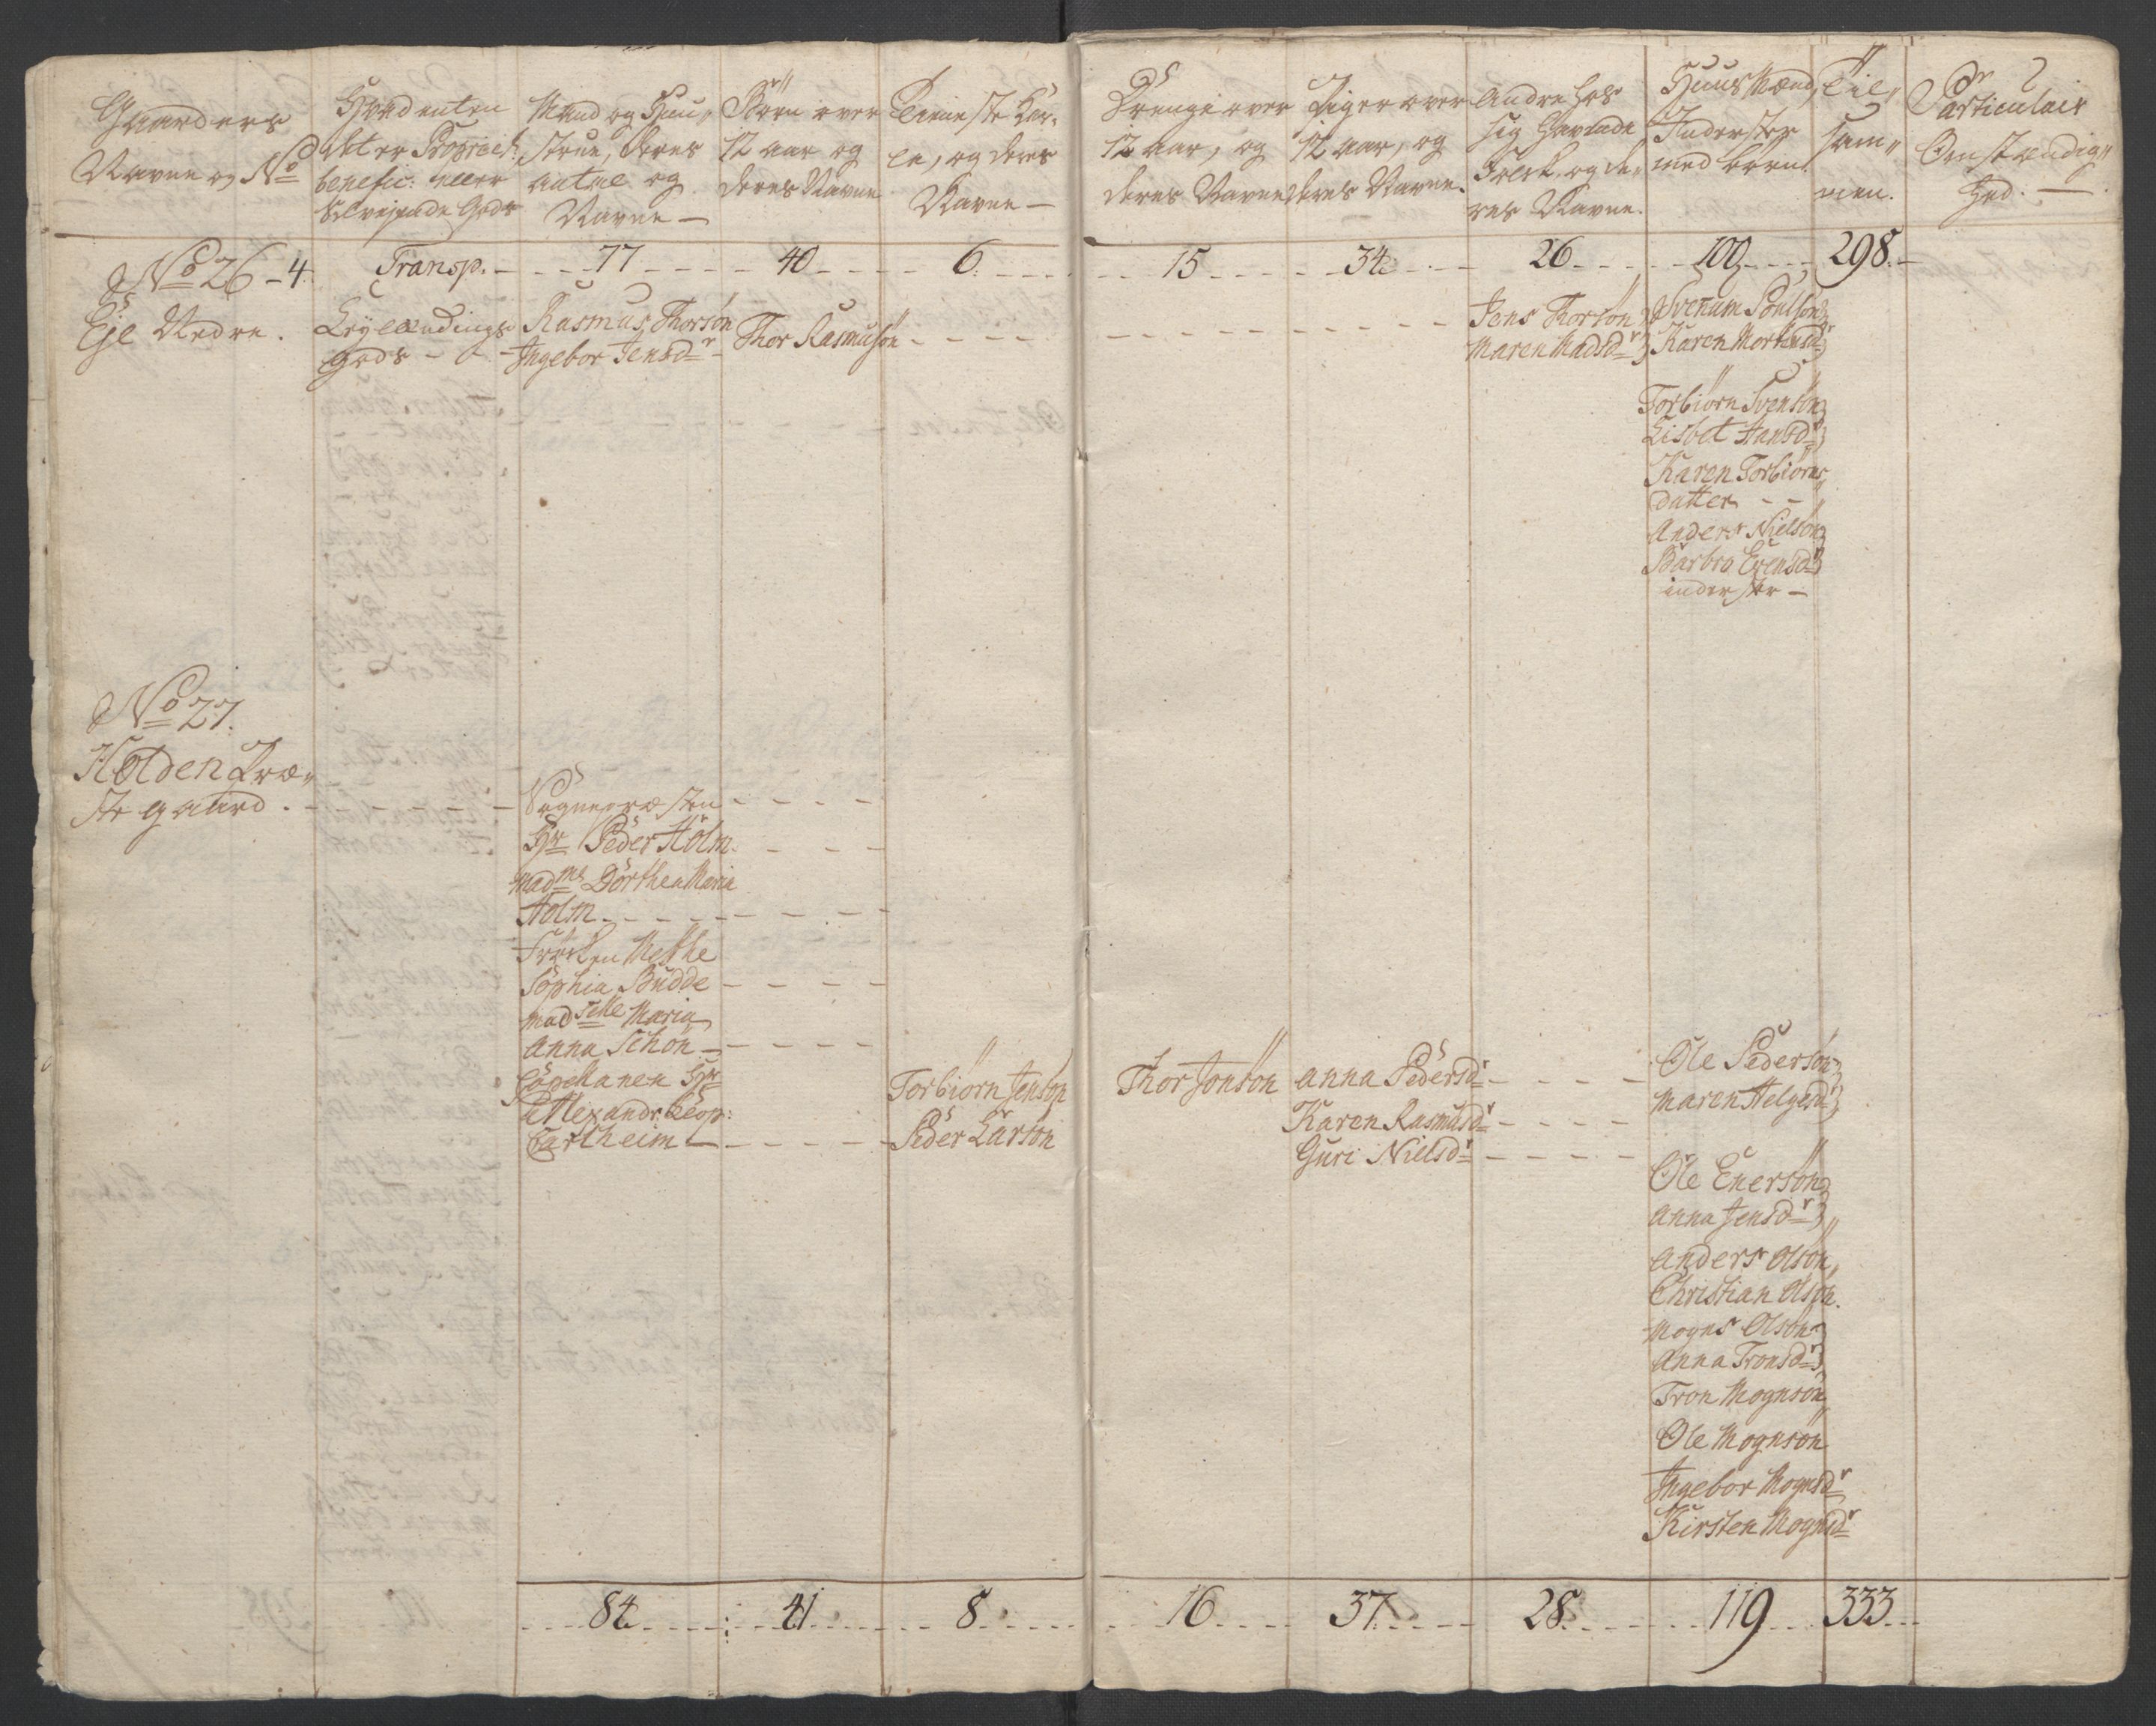 Gaarders
Navne og No
Hvad enten
det er Propriet:
benefic: eller
Selvejende Gods
Mand og Huu„
strue, deres
antal og
Navne —
Börn over
12 aar og
deres Navne
Tieneste Kar„
le, og deres
Navne —
Drenge over
12 aar, og
deres Navne
Piger over
12 aar, og
deres Navne.
Andre hos
sig havende
Folk, og de„
res Navne.
HuusMænd,
Inderster
med børn.
Til„
sam„
men.
Particulair
Omstændig„
hed. —
No 26 - 4.
Transp. - - - 77 - - - - 40 - - - - 6. - - - - 15 - - - - 34 - - - - 26 - - - - 100 - - - 298. -
Eje Nedre.
Leylændings
gods - - -
Rasmus Thorsön
Ingebor Jensdr
Thor Rasmusön - - - -
Jens Thorsön
Maren Madsdr
Svenum Poulsön
Karen Mortensdr
Torbiörn Svensön
Lisbet Hansdr
Karen Torbiörns
datter - -
Anders Nielsön
Barbro Evensdr
inderster —
No 27.
Holden Præ„
ste gaard. - - - - -
Sognepræsten - - - -
Hr Peder Holm. - - -
Madme Dorthea Maria
Holm - - - - - - - -
Fröiken Methe
Sophia Budde - - - -
Madselle Maria
Anna Schön - - - - -
Capellanen Hr
Allexandr. Leop:
Cartheim - - - - -
Torbiörn Jensön
Peder Larsön
Thor Jonsön
Anna Pedersdr - - - -
Karen Rasmusdr - - - -
Guri Nielsdr - - - -
Ole Pedersön
Maren Helgesdr
Ole Enersön
Anna Jensdr
Anders Olsön
Christian Olsön.
Mogns Olsön
Anna Tronsdr
Tron Mognsön
Ole Mognsön
Ingebor Mognsdr
Kirsten Mognsdr
- - - 84 - - - - 41 - - - - 8 - - - - 16 - - - - 37 - - - - 28. - - - - 119 - - - 333 - -